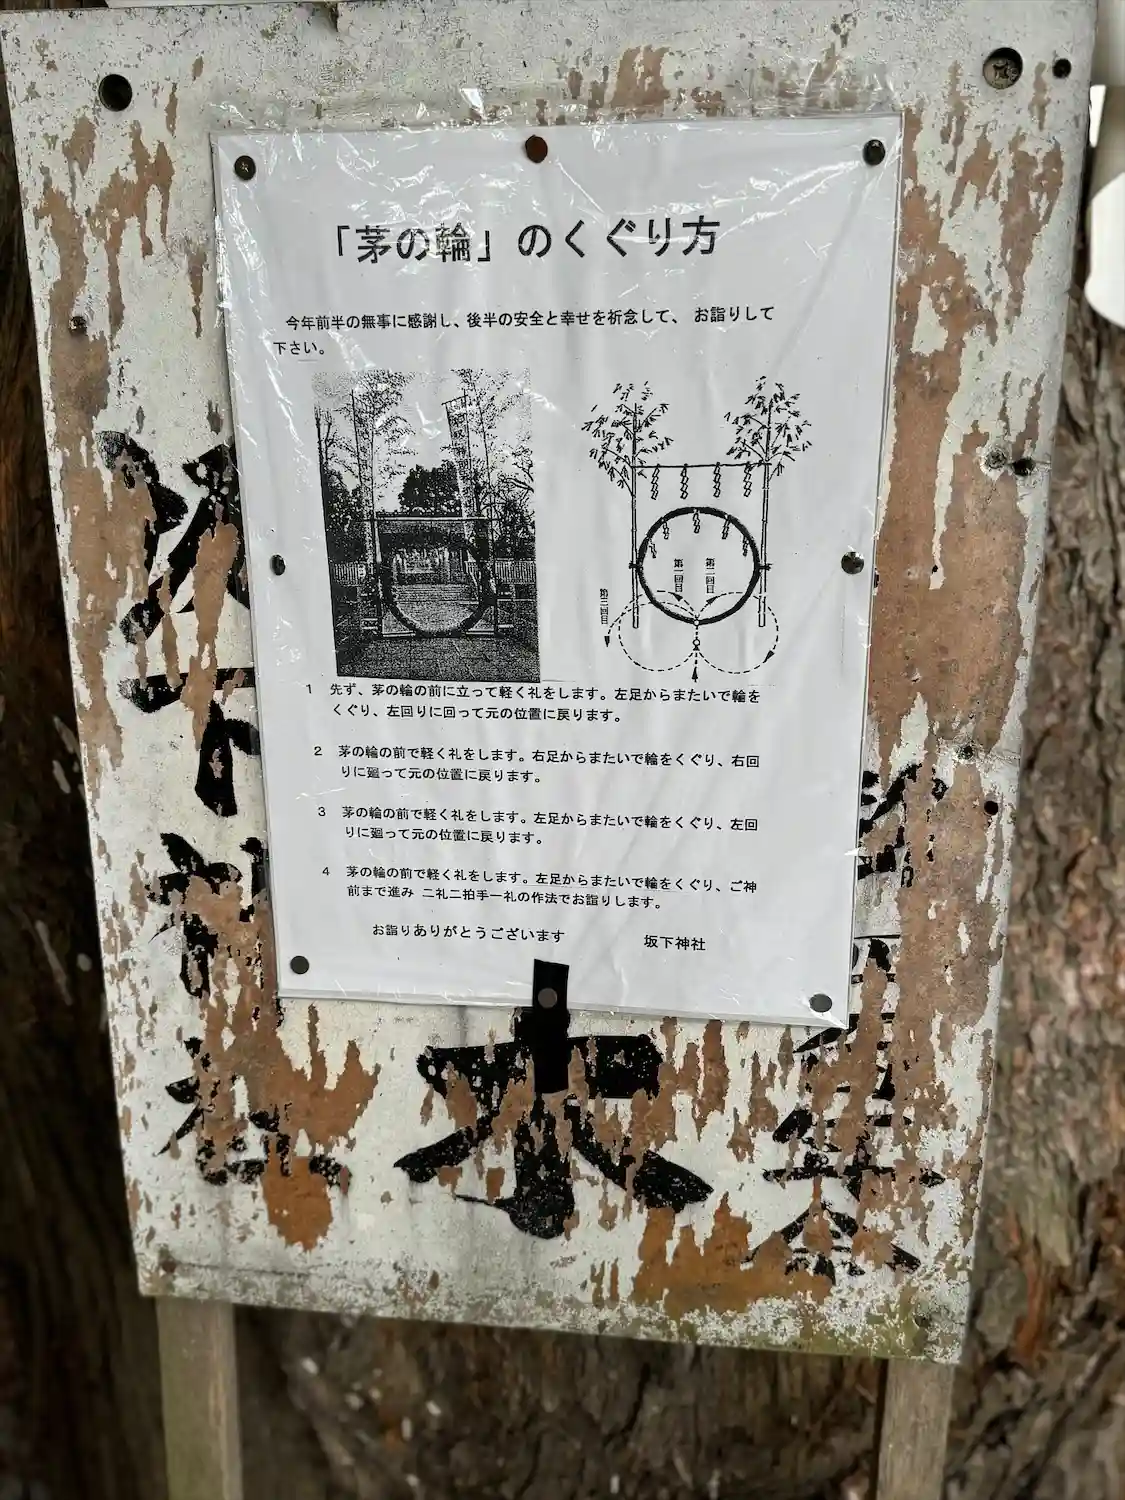 「茅の輪」のくぐり方
今年前半の無事に感謝し、後半の安全と幸せを祈念して、 お詣りして
下さい。
第一回目
第二回目
第三回目
1 先ず、茅の輪の前に立って軽く礼をします。左足からまたいで輪を
くぐり、左回りに回って元の位置に戻ります。
2 茅の輪の前で軽く礼をします。右足からまたいで輪をくぐり、右回
りに廻って元の位置に戻ります。
3 茅の輪の前で軽く礼をします。左足からまたいで輪をくぐり、左回
りに廻って元の位置に戻ります。
4 茅の輪の前で軽く礼をします。左足からまたいで輪をくぐり、ご神
前まで進み 二礼二拍手一礼の作法でお詣りします。
お詣りありがとうございます 坂下神社
木
坂下神社